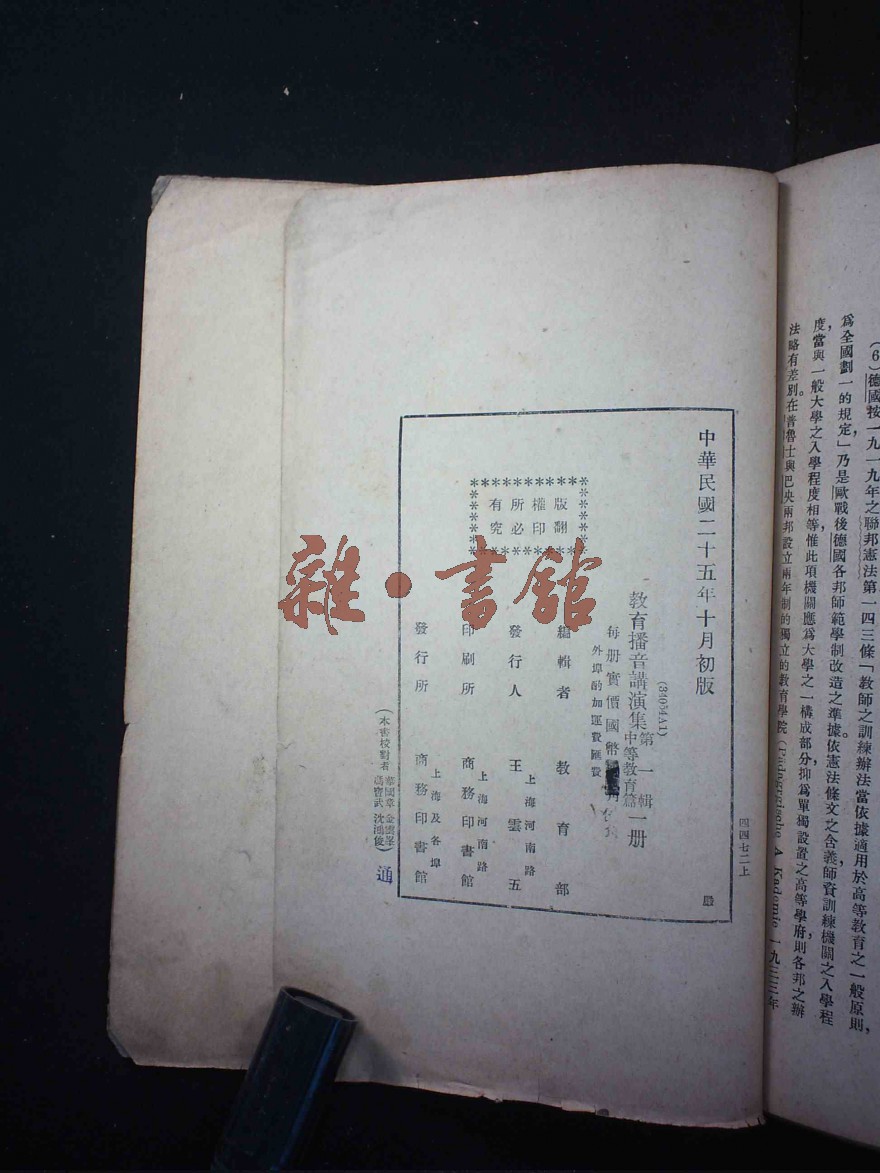 (6)德國按一九一九年之聯邦憲法第一四三條「教師之訓練辦法當依據適用於高等教育之一般原則,
爲全國劃一的規定」乃是歐戰後德國各邦師範學制改造之準據。依憲法條文之含義,師資訓練機關之入學程
度,當與一般大學之入學程度相等,惟此項機關應爲大學之一構成部分,抑爲單獨設置之高等學府,則各邦之辦
法略有差別。在普魯士與巴央兩邦設立兩年制的獨立的教育學院(Pädagogische Akademie 一九三三年
四四七二上
中華民國二十五年十月初版
(34054A1)
教育播音講演集第一輯中等教育篇一册
每册實價國幣
外埠酌加運費匯費
版權所有
翻印必究
編輯者 教育部
發行人 王雲五
上海河南路
印刷所 商務印書館
上海河南路
發行所 商務印書館
上海及各埠
(本書校對者 華國章 金雲峯 馮寶武 沈鴻俊)
通
雜·書館